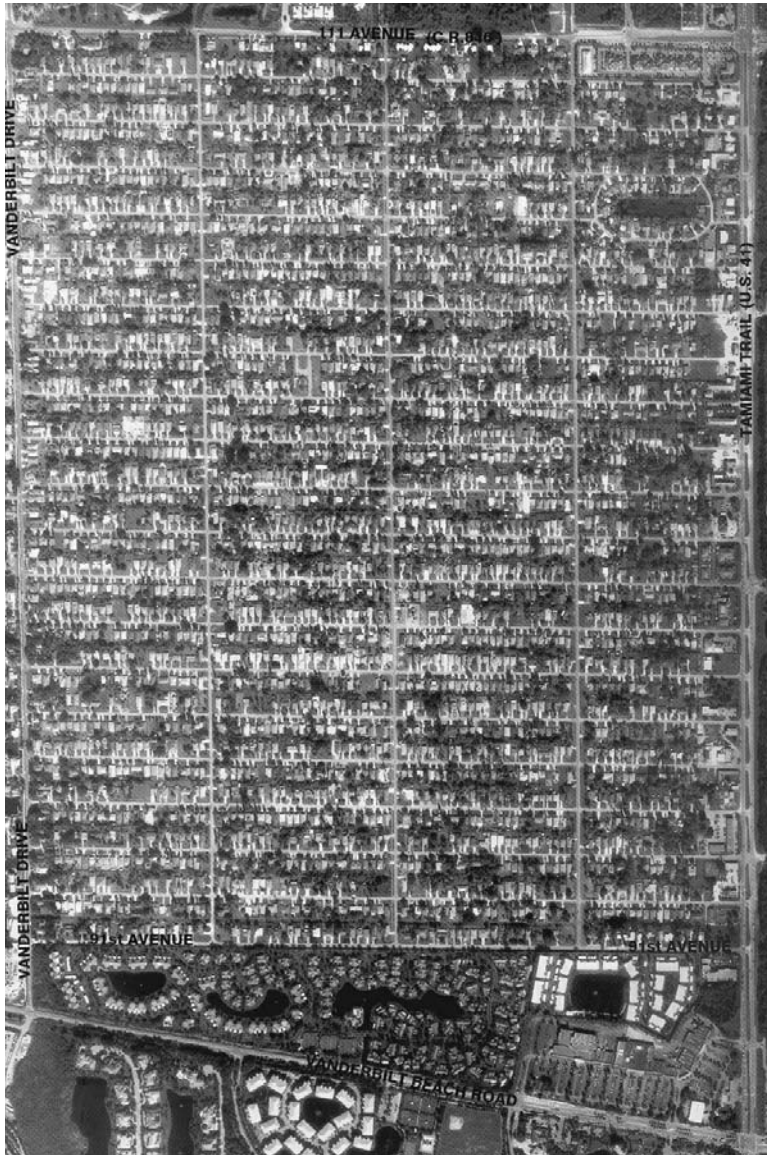 111 AVENUE (C.R.846)
VANDERBILT DRIVE
TAMIAMI TRAIL (U.S. 41)
VANDERBILT DRIVE
91st AVENUE
91st AVENUE
VANDERBILT BEACH ROAD